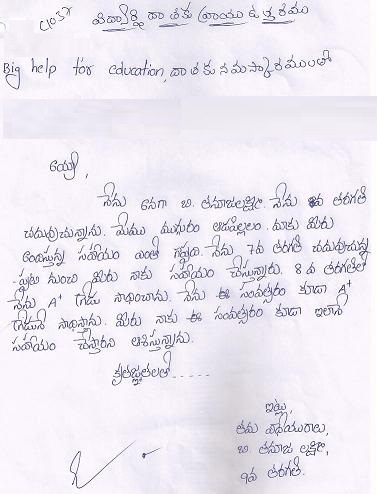 C1037
విద్యార్థి దాతకు వ్రాయు ఉత్తరము
Big help for education, దాతకు నమస్కారములతో
అయ్యా,
నేను అనగా బి. తనూజలక్ష్మి. నేను 9వ తరగతి
చదువుచున్నాను. మేము ముగ్గురం ఆడపిల్లలం. మాకు మీరు
అందిస్తున్న సహాయం ఎంతో గొప్పది. నేను 7వ తరగతి చదువుచున్న
ప్పటి నుంచి మీరు నాకు సహాయం చేస్తున్నారు. 8వ తరగతిలో
నేను A+ గ్రేడు సాధించాను. నేను ఈ సంవత్సరం కూడా A+
గ్రేడునే సాధిస్తాను. మీరు నాకు ఈ సంవత్సరం కూడా ఇలానే
సహాయం చేస్తారని ఆశిస్తున్నాను.
కృతజ్ఞతలతో......
ఇట్లు,
తమ విధేయురాలు,
బి. తనూజ లక్ష్మి,
9వ తరగతి.